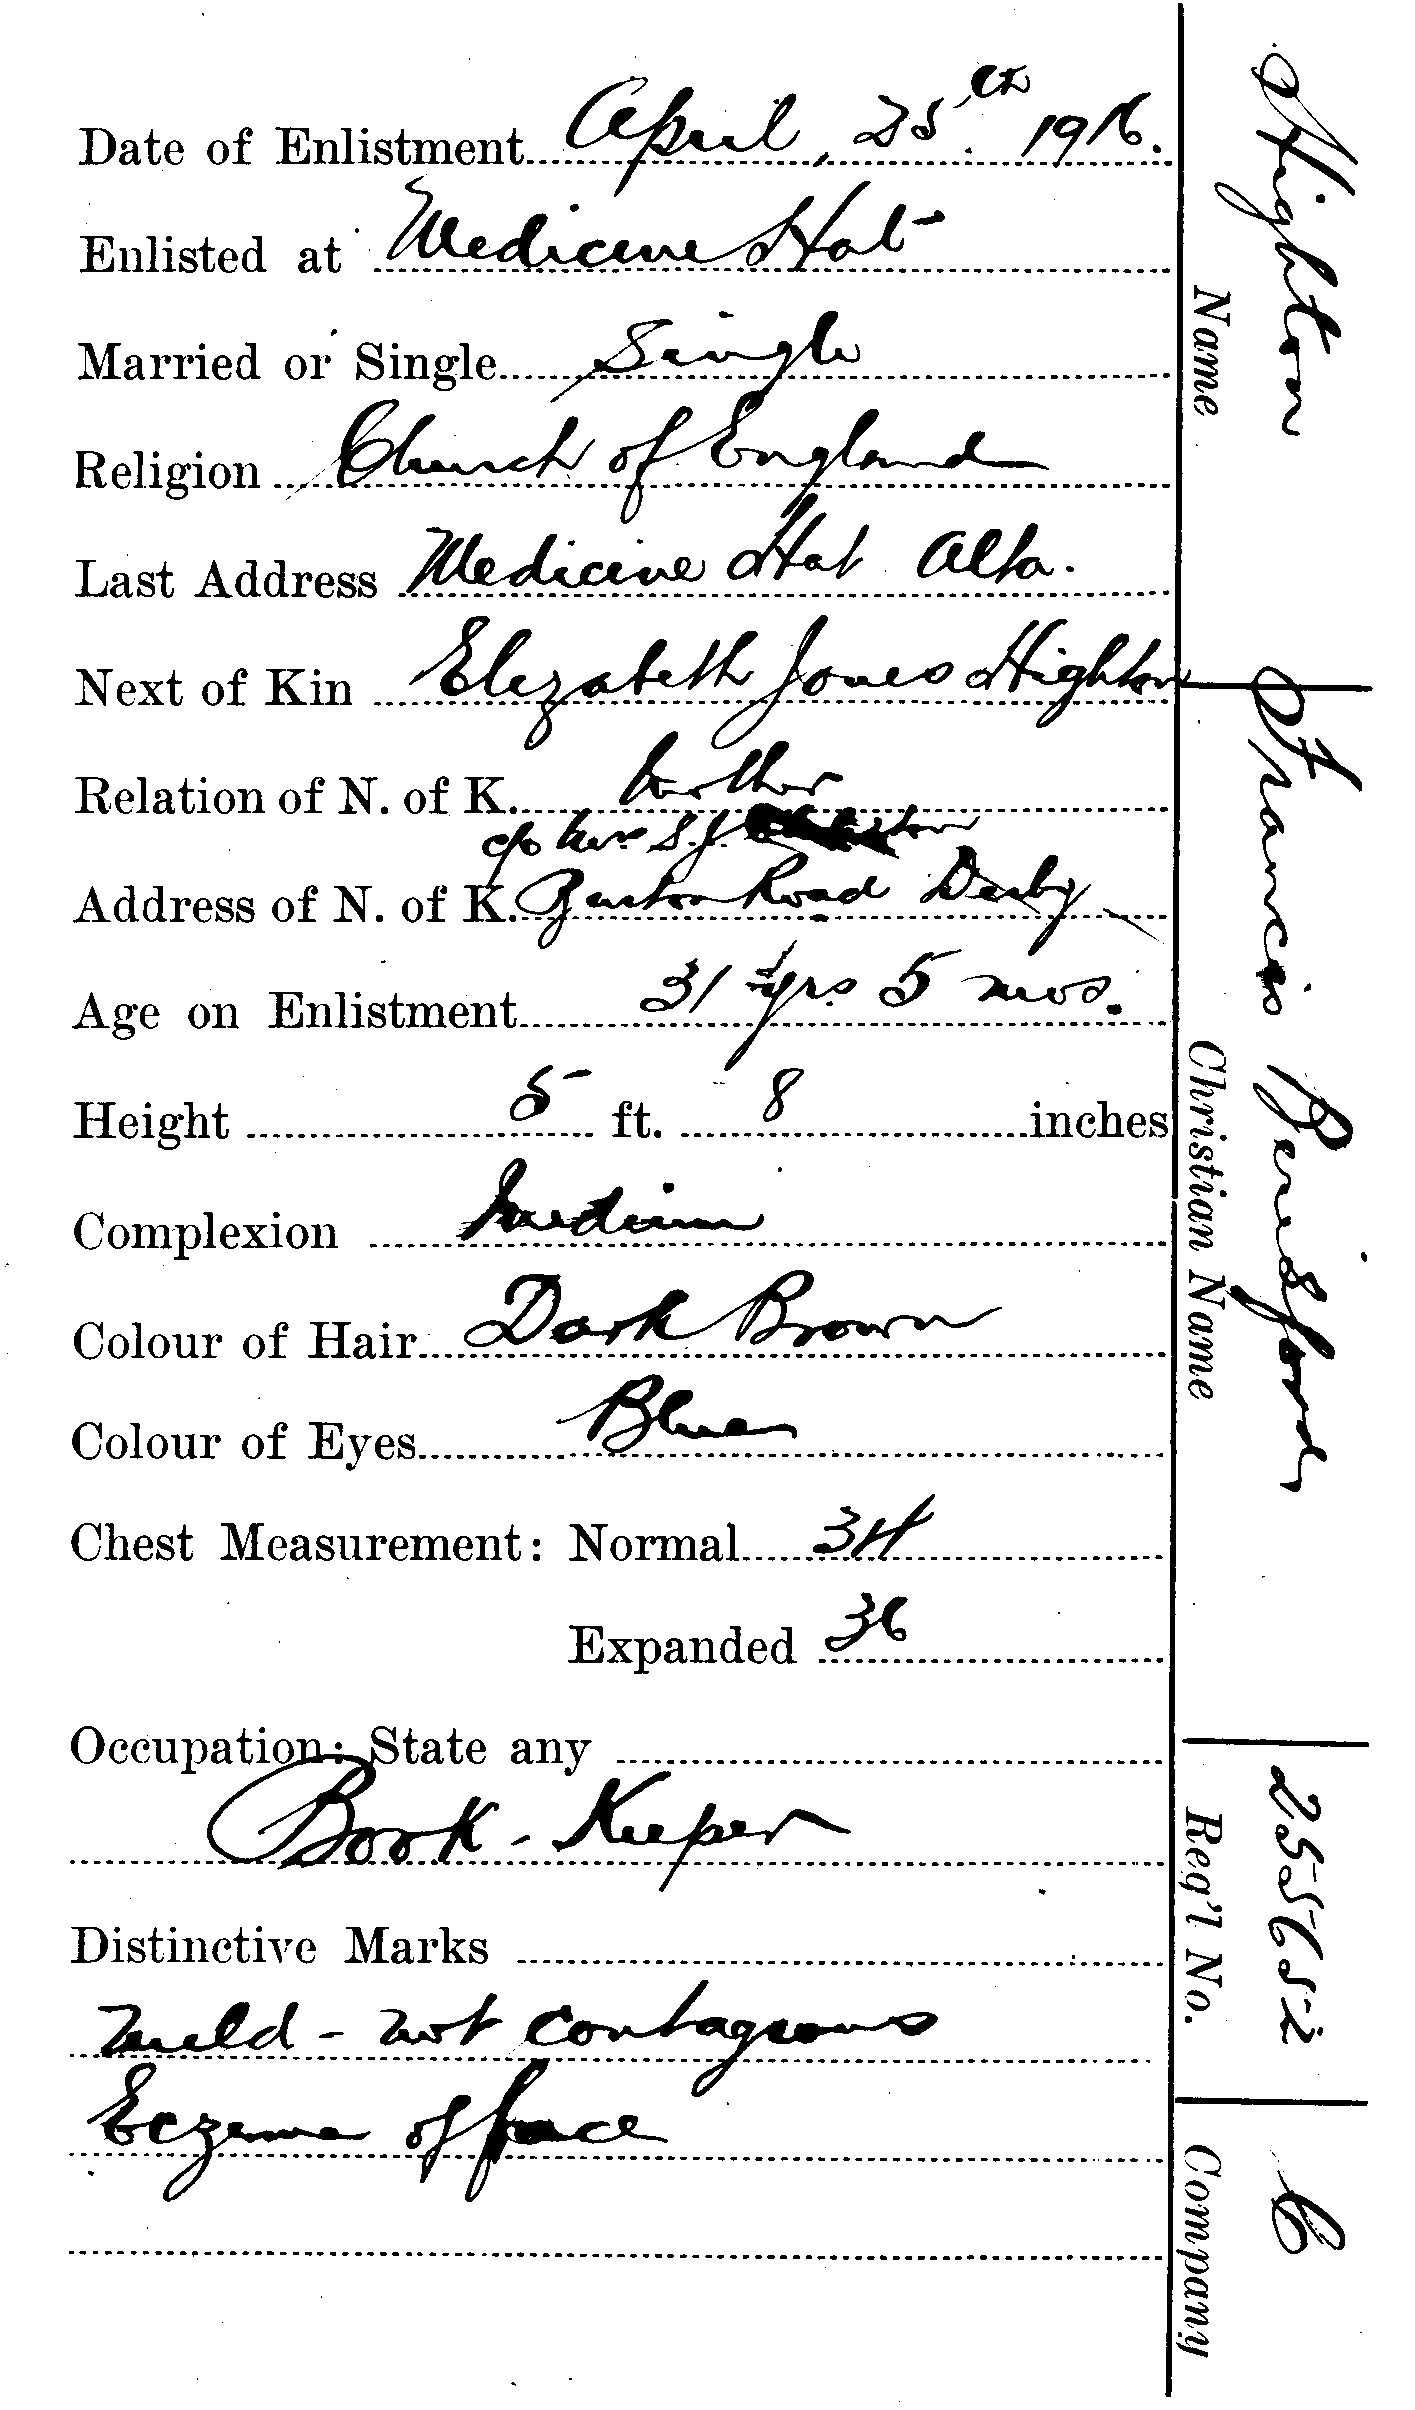 Date of Enlistment April, 25th 1916.
Enlisted at Medicine Hat
Married or Single Single
Religion Church of England
Last Address Medicine Hat Alta.
Next of Kin Elizabeth Jones Highton
Relation of N. of K. Mother
c/o Mrs. S.J.
Address of N. of K. Road Derby
Age on Enlistment 31 yrs 5 mos.
Height 5 ft. 8 inches
Complexion Medium
Colour of Hair Dark Brown
Colour of Eyes Blue
Chest Measurement: Normal 34
Expanded 36
Occupation: State any
Book-Keeper
Distinctive Marks
Mild - not contagious
Eczema of face
Highton
Name
Francis Beresford
Christian Name
255652
Reg'l No.
C
Company